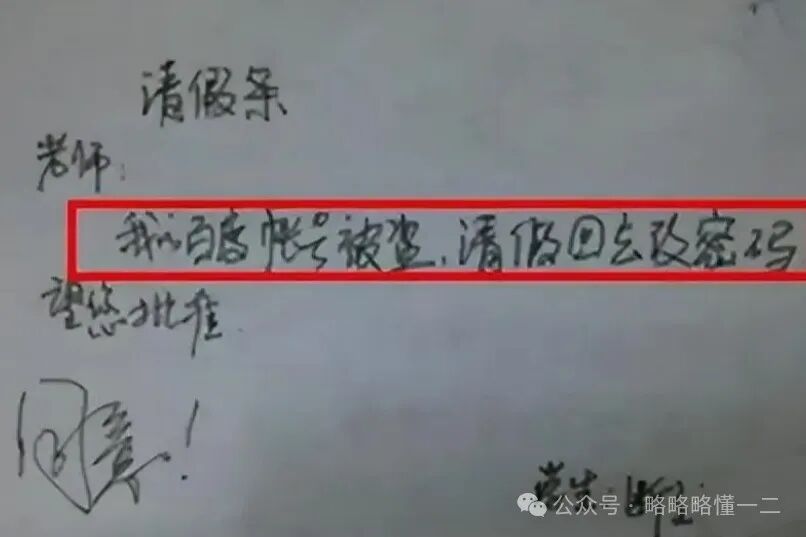 请假条
老师:
我的百度帐号被盗,请假回去改密码
望您批准
同意!
学生:
公众号·略略略懂一二